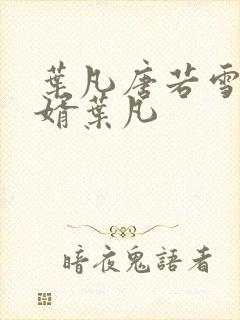 葉凡唐若雪
婿葉凡
暗夜鬼語者